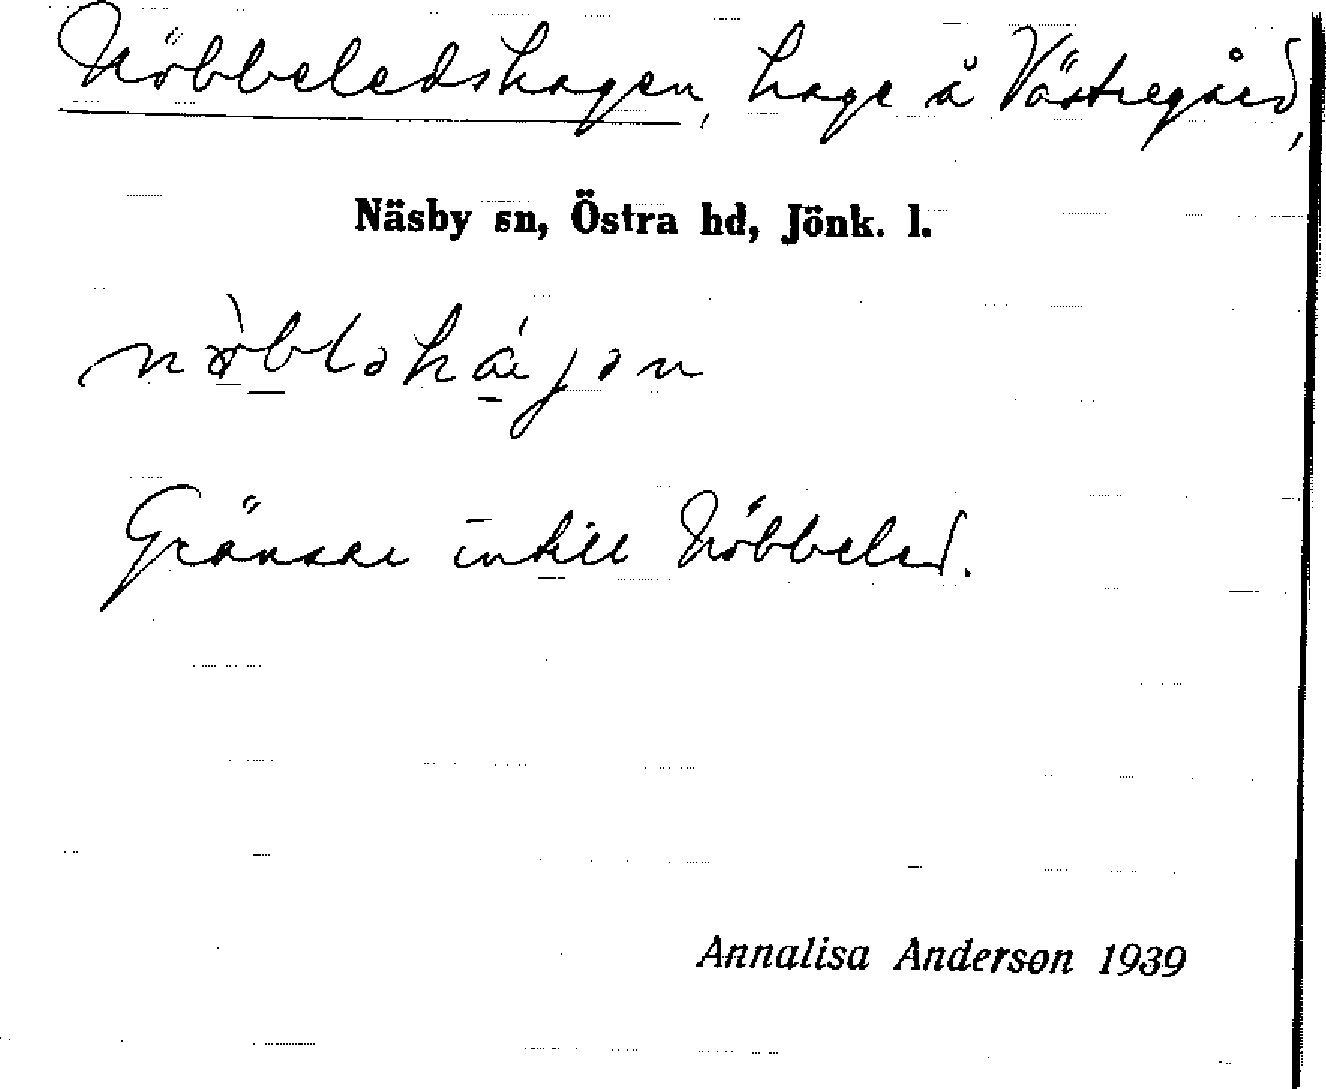 Nöbbeledshagen, hage å Västregård,
Näsby sn, Östra hd, Jönk. l.
Gränsar intill Nöbbeled.
Annalisa Anderson 1939